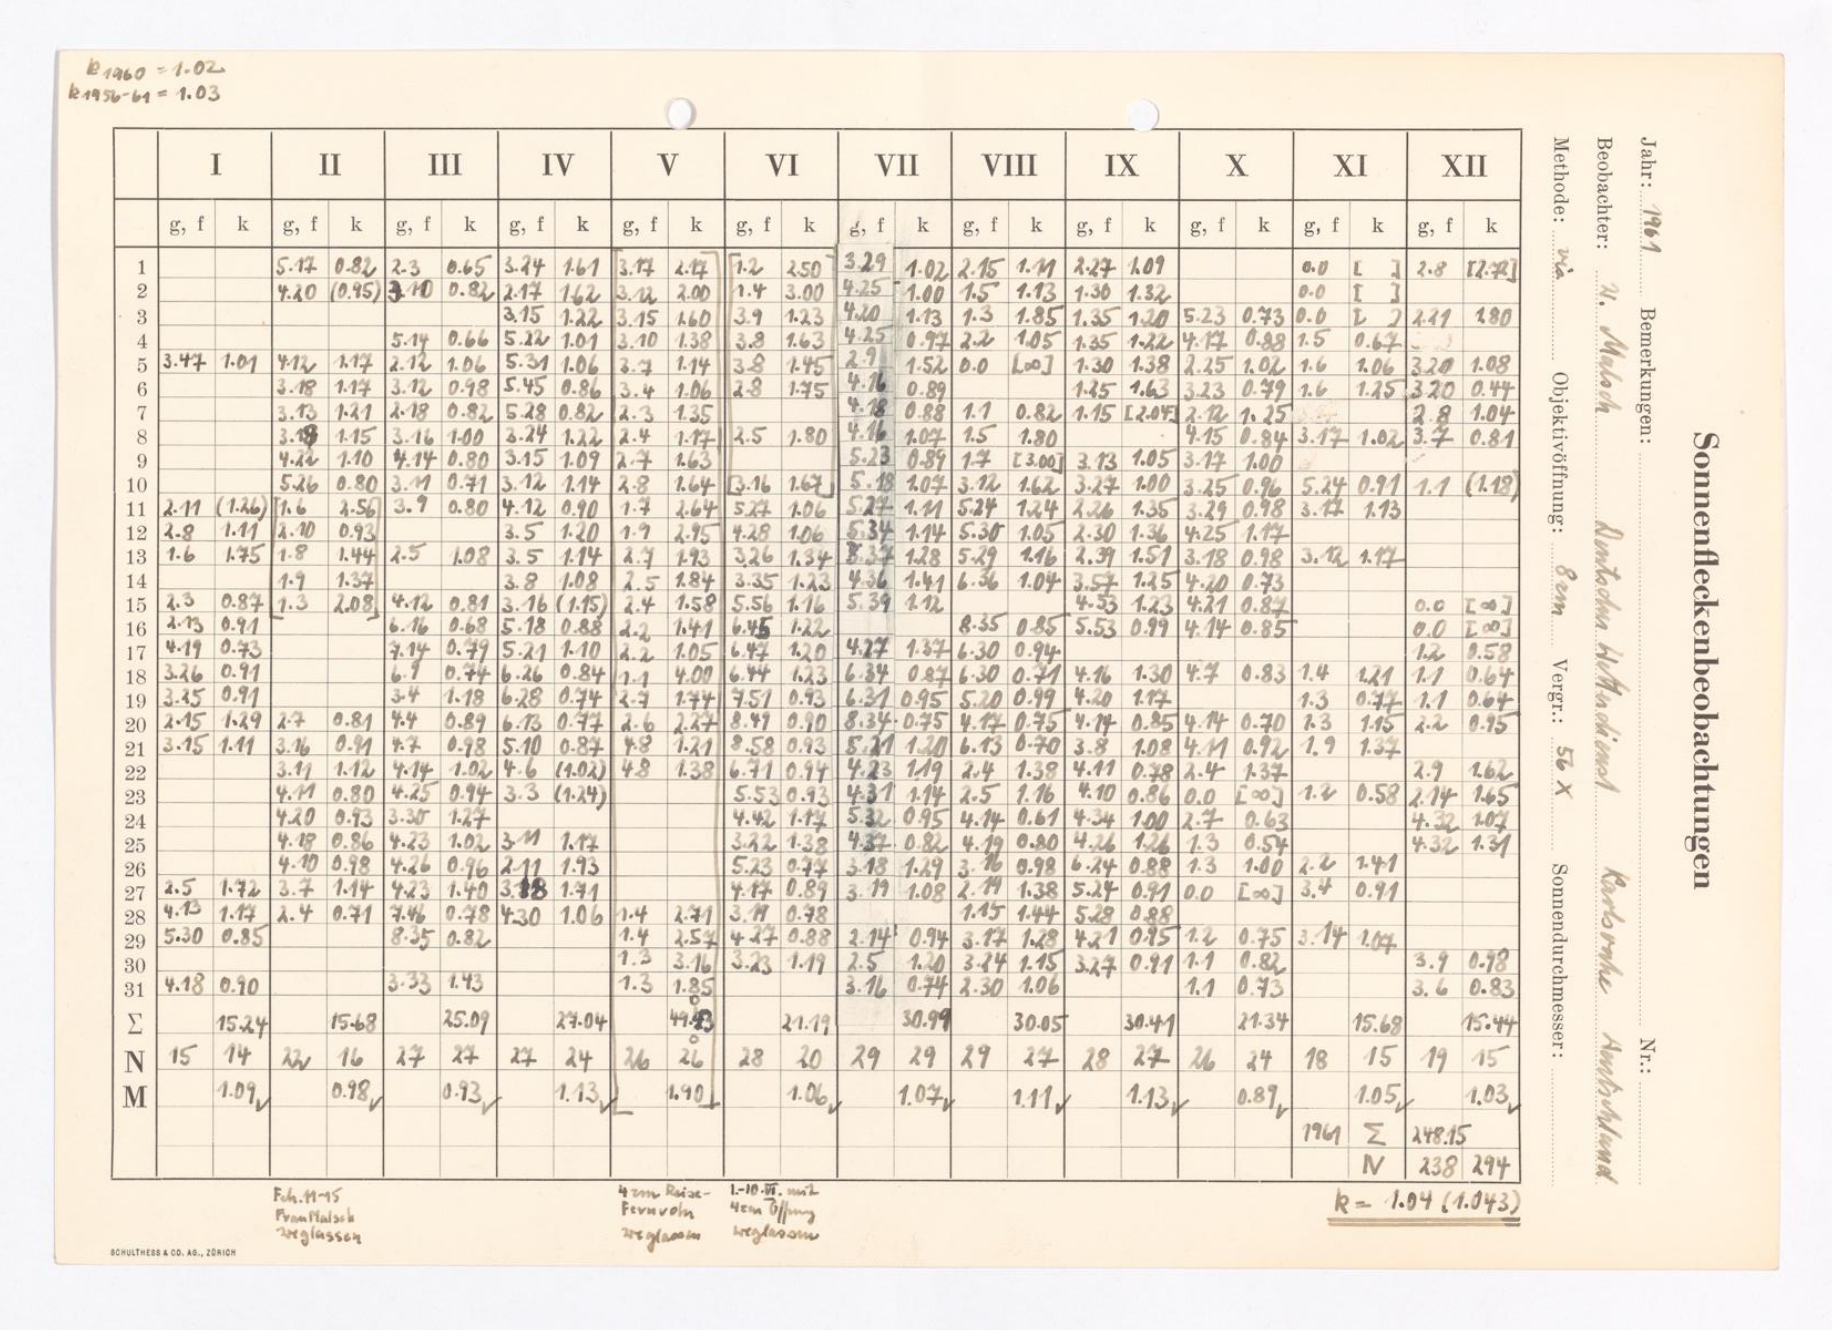 k 1960 = 1.02
k 1956-61 = 1.03
I II III IV V VI VII VIII IX X XI XII
g, f k g, f k g, f k g, f k g, f k g, f k g, f k g, f k g, f k g, f k g, f k g, f k
1 5.17 0.82 2.3 0.65 3.24 1.61 3.17 2.17 1.2 2.50 3.29 1.02 2.15 1.11 2.27 1.09 0.0 [ ] 2.8 [2.72]
2 4.20 (0.95) 3.10 0.82 2.17 1.62 3.12 2.00 1.4 3.00 4.25 1.00 1.5 1.13 1.30 1.32 0.0 [ ]
3 3.15 1.22 3.15 1.60 3.9 1.23 4.20 1.13 1.3 1.85 1.35 1.20 5.23 0.73 0.0 [ ] 2.21 1.80
4 5.14 0.66 5.22 1.01 3.10 1.38 3.8 1.63 4.25 0.97 2.2 1.05 1.35 1.22 4.17 0.88 1.5 0.67
5 3.47 1.01 4.12 1.17 2.12 1.06 5.31 1.06 3.7 1.14 3.8 1.45 2.9 1.52 0.0 [∞] 1.30 1.38 2.25 1.02 1.6 1.06 3.20 1.08
6 3.18 1.17 3.12 0.98 5.45 0.86 3.4 1.06 2.8 1.75 4.16 0.89 1.25 1.63 3.23 0.79 1.6 1.25 3.20 0.44
7 3.13 1.21 2.18 0.82 5.28 0.82 2.3 1.35 4.18 0.88 1.1 0.82 1.15 [2.04] 2.12 1.25 2.8 1.04
8 3.18 1.15 3.16 1.00 3.24 1.22 2.4 1.17 2.5 1.80 4.16 1.07 1.5 1.80 4.15 0.84 3.17 1.02 3.7 0.81
9 4.22 1.10 4.14 0.80 3.15 1.09 2.7 1.63 5.23 0.89 1.7 [3.00] 3.13 1.05 3.17 1.00
10 5.26 0.80 3.11 0.71 3.12 1.14 2.8 1.64 3.16 1.67 5.18 1.07 3.12 1.62 3.27 1.00 3.25 0.96 5.24 0.91 1.1 (1.18)
11 2.11 (1.26) [1.6 2.56] 3.9 0.80 4.12 0.90 1.7 2.64 5.27 1.06 5.27 1.11 5.24 1.24 2.26 1.35 3.29 0.98 3.17 1.13
12 2.8 1.11 2.10 0.93 3.5 1.20 1.9 2.95 4.28 1.06 5.34 1.14 5.30 1.05 2.30 1.36 4.25 1.17
13 1.6 1.75 1.8 1.44 2.5 1.08 3.5 1.14 2.7 1.93 3.26 1.34 5.37 1.28 5.29 1.16 2.39 1.51 3.18 0.98 3.12 1.17
14 1.9 1.37 3.8 1.08 2.5 1.84 3.35 1.23 4.36 1.41 6.36 1.04 3.57 1.25 4.20 0.73
15 2.3 0.87 1.3 2.08 4.12 0.81 3.16 (1.15) 2.4 1.58 5.56 1.16 5.39 1.12 4.53 1.23 4.21 0.87 0.0 [∞]
16 2.13 0.91 6.16 0.68 5.18 0.88 2.2 1.41 6.45 1.22 8.35 0.85 5.53 0.99 4.14 0.85 0.0 [∞]
17 4.19 0.73 7.14 0.79 5.21 1.10 2.2 1.05 6.47 1.20 4.27 1.37 6.30 0.94 1.2 0.58
18 3.26 0.91 6.9 0.74 6.26 0.84 1.1 4.00 6.44 1.23 6.34 0.87 6.30 0.71 4.16 1.30 4.7 0.83 1.4 1.21 1.1 0.64
19 3.25 0.91 3.4 1.18 6.28 0.74 2.7 1.74 7.51 0.93 6.31 0.95 5.20 0.99 4.20 1.17 1.3 0.77 1.1 0.64
20 2.15 1.29 2.7 0.81 4.4 0.89 6.13 0.77 2.6 2.27 8.49 0.90 8.34 0.75 4.17 0.75 4.14 0.85 4.14 0.70 1.3 1.15 2.2 0.95
21 3.15 1.11 3.16 0.91 4.7 0.98 5.10 0.87 4.8 1.21 8.58 0.93 5.21 1.20 6.13 0.70 3.8 1.08 4.11 0.92 1.9 1.37
22 3.11 1.12 4.14 1.02 4.6 (1.02) 4.8 1.38 6.71 0.94 4.23 1.19 2.4 1.38 4.11 0.78 2.4 1.37 2.9 1.62
23 4.11 0.80 4.25 0.94 3.3 (1.24) 5.53 0.93 4.31 1.14 2.5 1.16 4.10 0.86 0.0 [∞] 1.2 0.58 2.14 1.65
24 4.20 0.93 3.30 1.27 4.42 1.17 5.32 0.95 4.14 0.61 4.34 1.00 2.7 0.63 4.32 1.07
25 4.18 0.86 4.23 1.02 3.11 1.17 3.22 1.38 4.37 0.82 4.19 0.80 4.26 1.26 1.3 0.54 4.32 1.31
26 4.10 0.98 4.26 0.96 2.11 1.93 5.23 0.77 3.18 1.29 3.16 0.98 6.24 0.88 1.3 1.00 2.2 1.41
27 2.5 1.72 3.7 1.14 4.23 1.40 3.18 1.71 4.17 0.89 3.19 1.08 2.19 1.38 5.24 0.91 0.0 [∞] 3.4 0.91
28 4.13 1.17 2.4 0.71 7.46 0.78 4.30 1.06 1.4 2.71 3.19 0.78 1.15 1.44 5.28 0.88
29 5.30 0.85 8.35 0.82 1.4 2.57 4.27 0.88 2.14 0.94 3.17 1.28 4.21 0.95 1.2 0.75 3.14 1.07
30 1.3 3.16 3.23 1.19 2.5 1.20 3.24 1.15 3.27 0.91 1.1 0.82 3.9 0.98
31 4.18 0.90 3.33 1.43 1.3 1.85 3.16 0.74 2.30 1.06 1.1 0.73 3.6 0.83
Σ 15.24 15.68 25.09 27.04 49.43 21.19 30.99 30.05 30.41 21.34 15.68 15.44
N 15 14 22 16 27 27 27 24 26 26 28 20 29 29 29 27 28 27 26 24 18 15 19 15
M 1.09 0.98 0.93 1.13 1.90 1.06 1.07 1.11 1.13 0.89 1.05 1.03
1961 Σ 248.15
N 238 294
k = 1.04 (1.043)
Feb. 11-15
Frau Malsch
weglassen
4cm Reise-
Fernrohr
weglassen
1.-10. VI. mit
4cm Öffnung
weglassen
SCHULTHESS & CO. AG., ZÜRICH
Sonnenfleckenbeobachtungen
Jahr: 1961 Bemerkungen: Nr.:
Beobachter: W. Malsch Deutscher Wetterdienst Karlsruhe
Methode: vis Objektivöffnung: 8 cm Vergr.: 56 X Sonnendurchmesser: